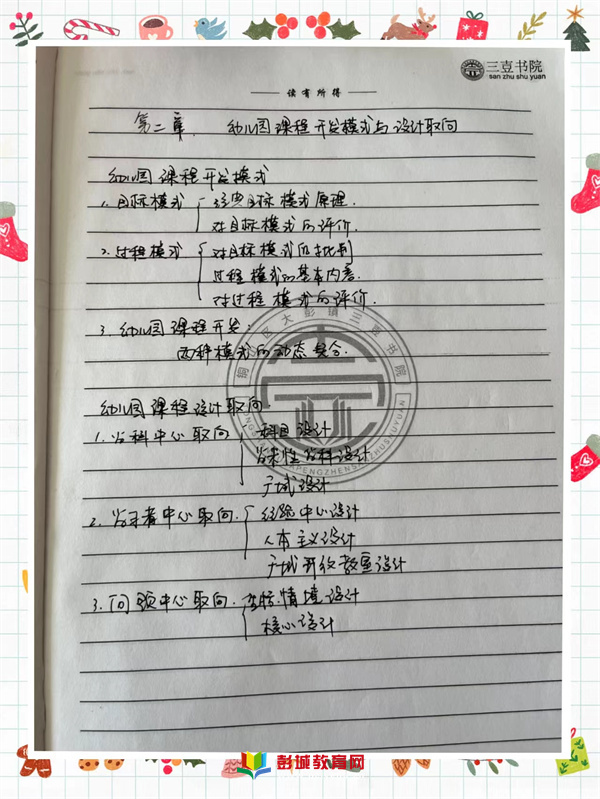 三壹书院
san zhu shu yuan
读有所得
第二章. 幼儿园课程开发模式与设计取向
幼儿园课程开发模式
1. 目标模式 经典目标模式原理.
对目标模式的评价.
2. 过程模式 对目标模式的批判
过程模式的基本内容.
对过程模式的评价.
3. 幼儿园课程开发:
两种模式的动态整合.
幼儿园课程设计取向
1. 学科中心取向 科目设计
学术性学科设计
广域设计
2. 学习者中心取向. 经验中心设计
人本主义设计
开放教室设计
3. 问题中心取向. 生活情境设计
核心设计
彭城教育网